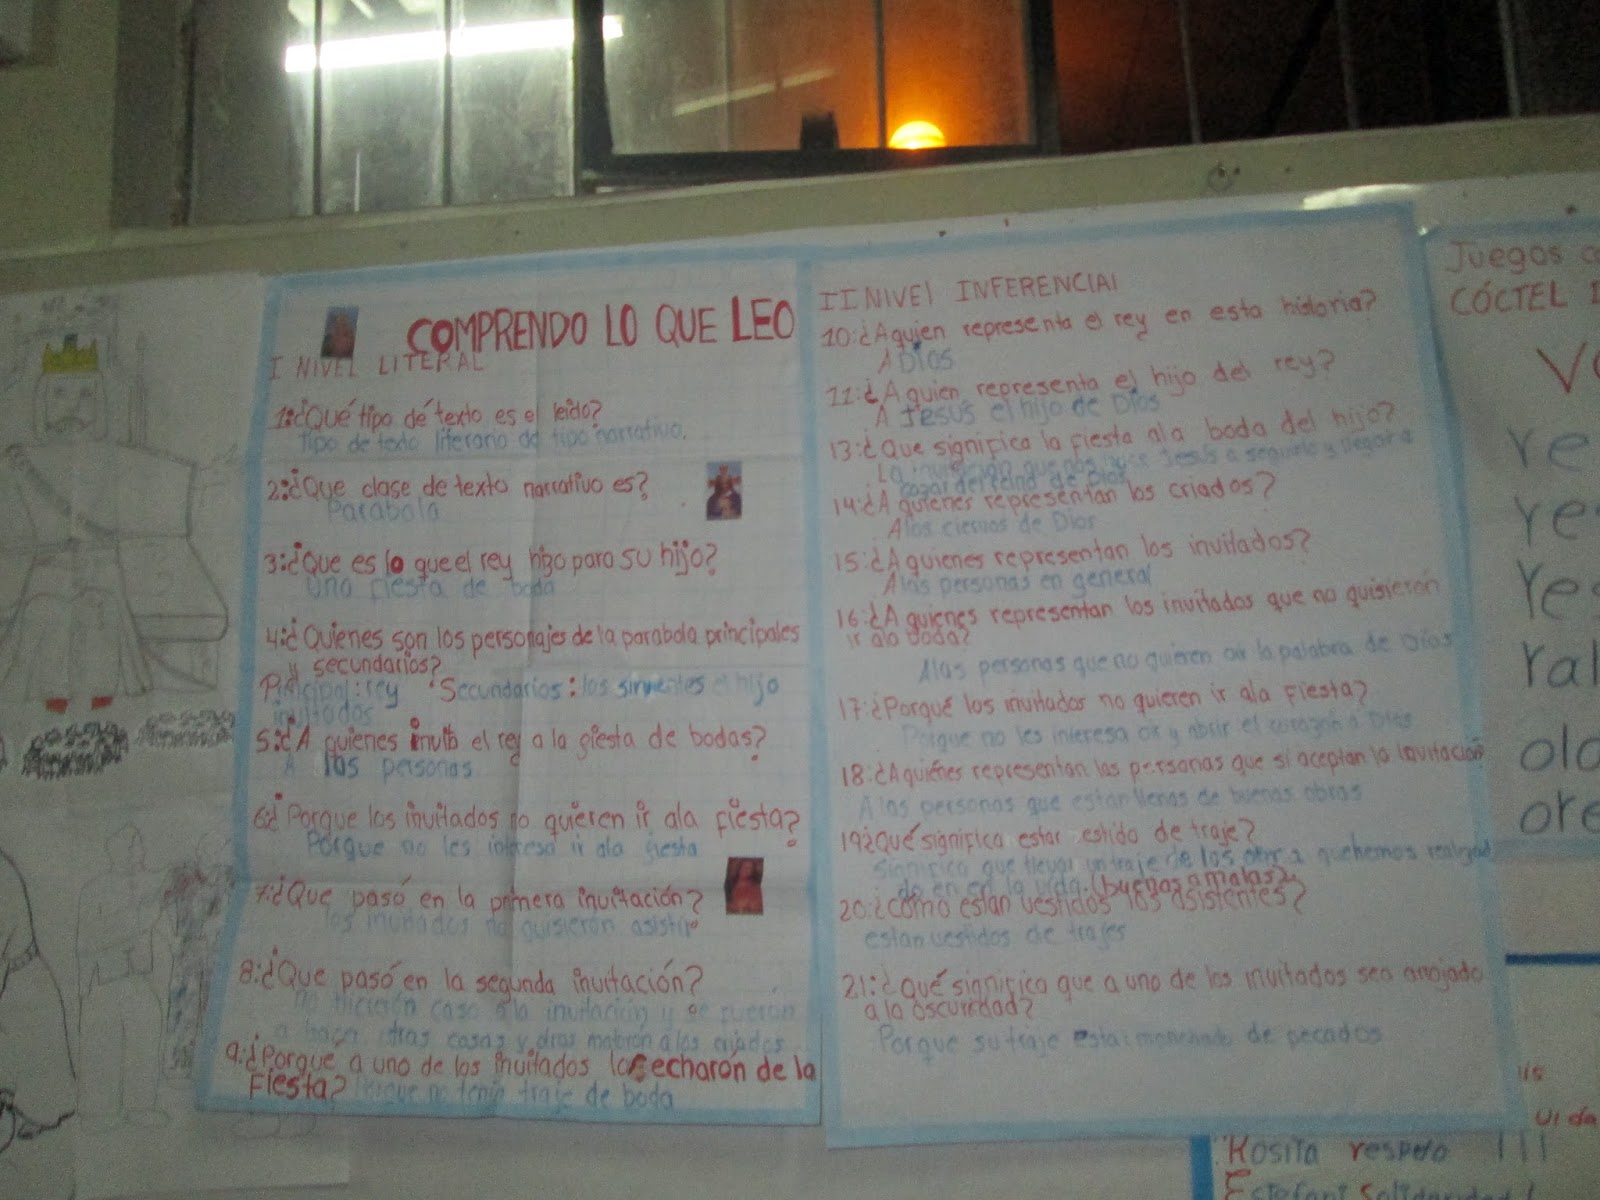 COMPRENDO LO QUE LEO
I NIVEL LITERAL
1:¿Qué tipo de texto es el leido?
tipo de texto literario de tipo narrativo.
2:¿Que clase de texto narrativo es?
Parabola
3:¿Que es lo que el rey hizo para su hijo?
Una fiesta de boda
4:¿Quienes son los personajes de la parabola principales
y secundarios?
Principal: rey Secundarios: los sirvientes el hijo
invitados
5:¿A quienes invito el rey a la fiesta de bodas?
A las personas
6:¿Porque los invitados no quieren ir ala fiesta?
Porque no les interesa ir ala fiesta
7:¿Que pasó en la primera invitación?
los invitados no quisierón asistir
8:¿Que pasó en la segunda invitación?
no hicierón caso a la invitación y se fuerón
a hacer otras casas y otros matarón a los criados
9:¿Porque a uno de los invitados los echarón de la
Fiesta? Porque no tenía traje de boda
II NIVEl INFERENCIAl
10:¿A quien representa el rey en esta historia?
A Dios
11:¿A quien representa el hijo del rey?
A Jesús el hijo de Dios
13:¿Que significa la fiesta ala boda del hijo?
La invitación que nos hace Jesús a seguirlo y llegar a
gozar del reino de Dios
14:¿A quienes representan los criados?
A los ciervos de Dios
15:¿A quienes representan los invitados?
A las personas en general
16:¿A quienes representan los invitados que no quisierón
ir ala boda?
A las personas que no quieren oir la palabra de Dios
17:¿Porqué los invitados no quieren ir ala fiesta?
Porque no les interesa oir y abrir el corazón a Dios
18:¿A quiénes representan las personas que si aceptan la invitación
A las personas que estan llenas de buenas obras
19¿Qué significa estar estido de traje?
significa que llevar un traje de las obras que hemos realizad
do en en la vida. (buenas o malas).
20:¿cómo estan vestidos los asistentes?
estan vestidos de trajes
21:¿qué significa que a uno de los invitados sea arrojado
a la oscuredad?
Porque su traje esta: manchado de pecados
Juegos
CÓCTEL
Rosita respeto
Estefani